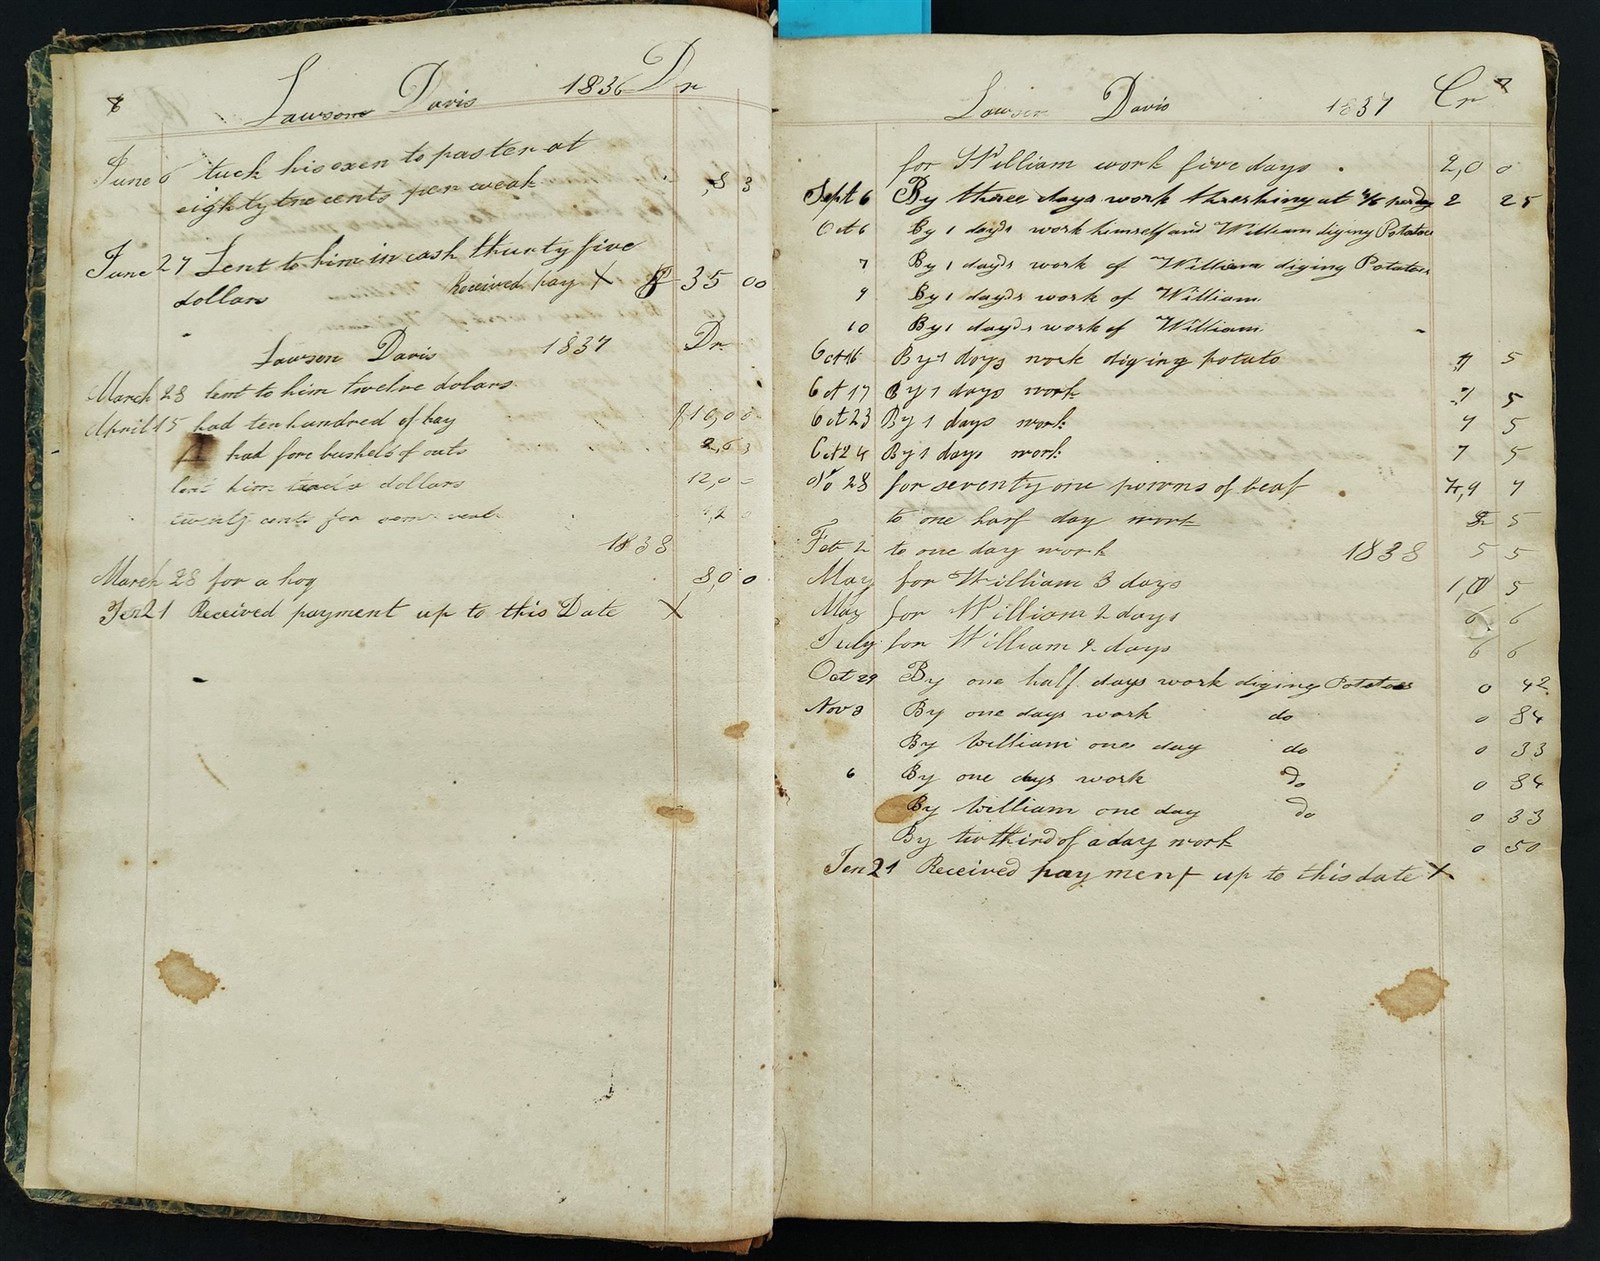 8 Lawson Davis 1836 Dr
June 6 tuck his oxen to paster at
eighty tre cents per weak ,83
June 27 Lent to him in cash thurty five
dollars Received pay X $ 35 00
Lawson Davis 1837 Dr
March 28 lent to him twelve dolars
April 15 had ten hundred of hay $10,00
had fore bushels of oats 2,63
lent him dollars 12,0
twenty cents for veal ,20
1838
March 28 for a hog 8,00
Jen 21 Received payment up to this Date X
Lawson Davis 1837 Cr 8
for William work five days 2,00
Sept 6 By three days work threshing at 4/6 per day 2 25
Oct 6 By 1 day's work himself and William diging Potatoes
7 By 1 day's work of William diging Potatoes
9 By 1 day's work of William
10 By 1 day's work of William
Oct 16 By 1 days work diging potato 7 5
Oct 17 By 1 days work 7 5
Oct 23 By 1 days work 7 5
Oct 24 By 1 days work 7 5
No 28 for seventy one powns of beaf 4,9 7
to one half day work 2 5
Feb 2 to one day work 1838 5 5
May for William 3 days 1,0 5
May for William 2 days 6 6
July for William 2 days 6 6
Oct 29 By one half days work diging Potatoes 0 42
Nov 3 By one days work do 0 84
By William one day do 0 33
6 By one days work do 0 84
By William one day do 0 33
By two third of a day work 0 50
Jen 21 Received payment up to this date X